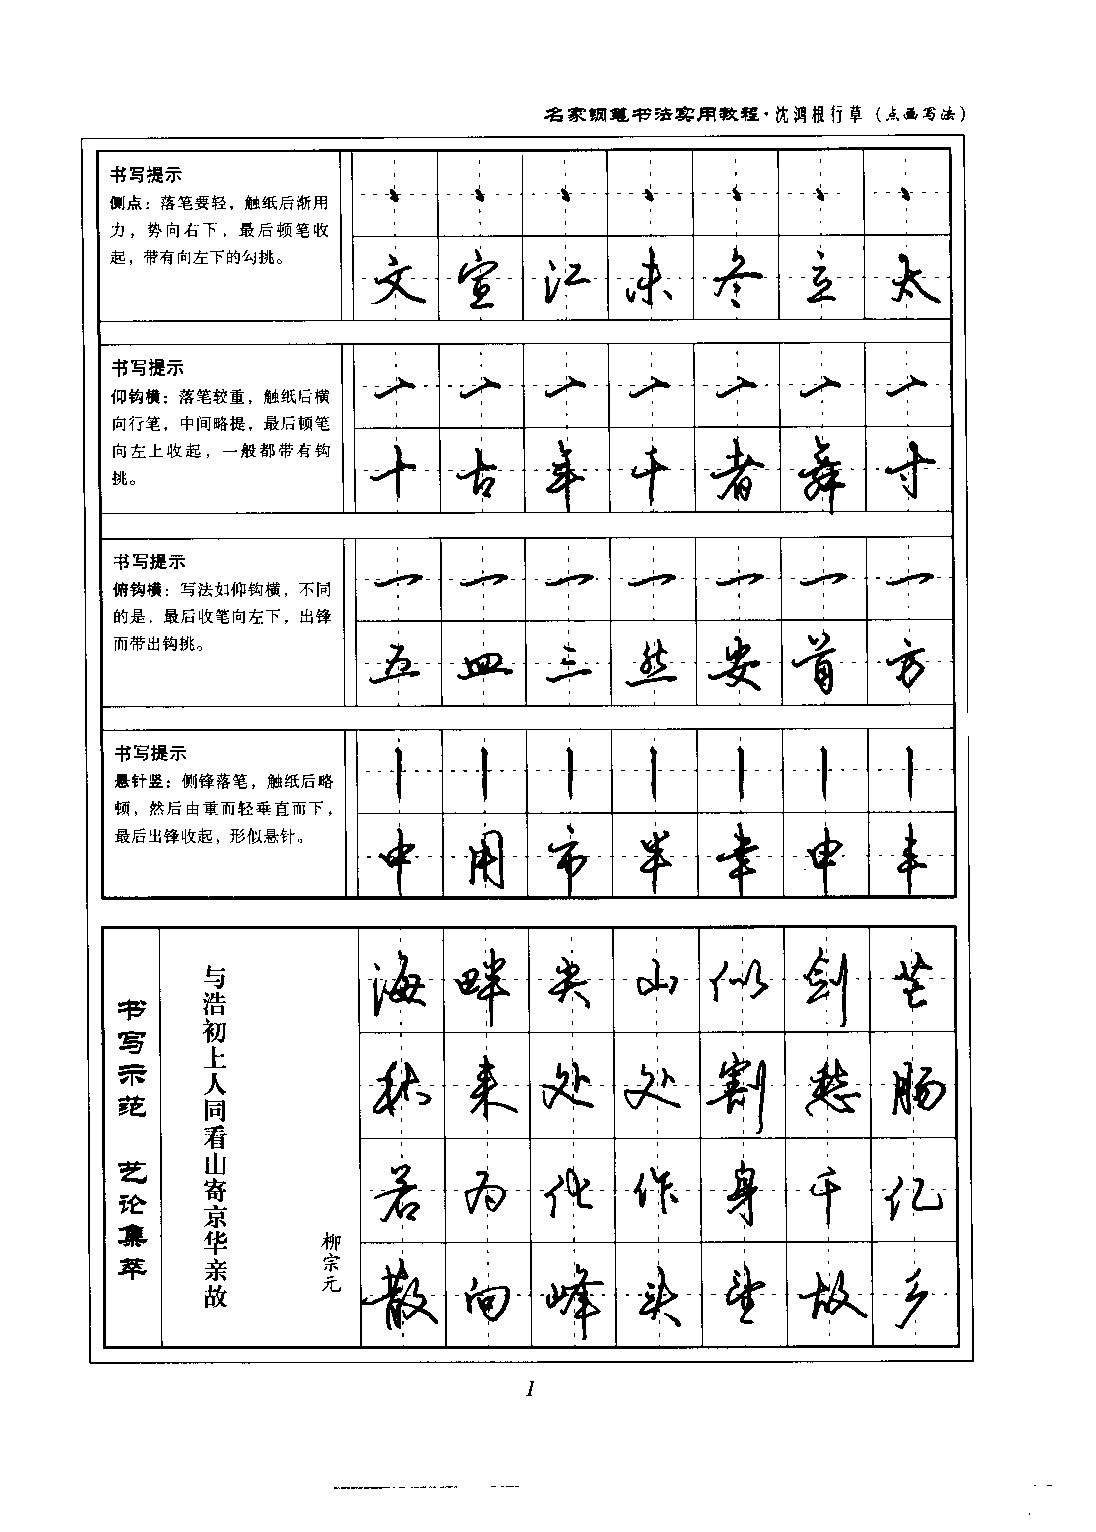 名家钢笔书法实用教程·沈鸿根行草（点画写法）
书写提示
侧点：落笔要轻，触纸后渐用
力，势向右下，最后顿笔收
起，带有向左下的勾挑。
文宣江未冬立太
书写提示
仰钩横：落笔较重，触纸后横
向行笔，中间略提，最后顿笔
向左上收起，一般都带有钩
挑。
十古年千者舞寸
书写提示
俯钩横：写法如仰钩横，不同
的是，最后收笔向左下，出锋
而带出钩挑。
五皿三然安首方
书写提示
悬针竖：侧锋落笔，触纸后略
顿，然后由重而轻垂直而下，
最后出锋收起，形似悬针。
中用市半幸申丰
书写示范 艺论集萃
与浩初上人同看山寄京华亲故
柳宗元
海畔尖山似剑芒
秋来处处割愁肠
若为化作身千亿
散向峰头望故乡
1